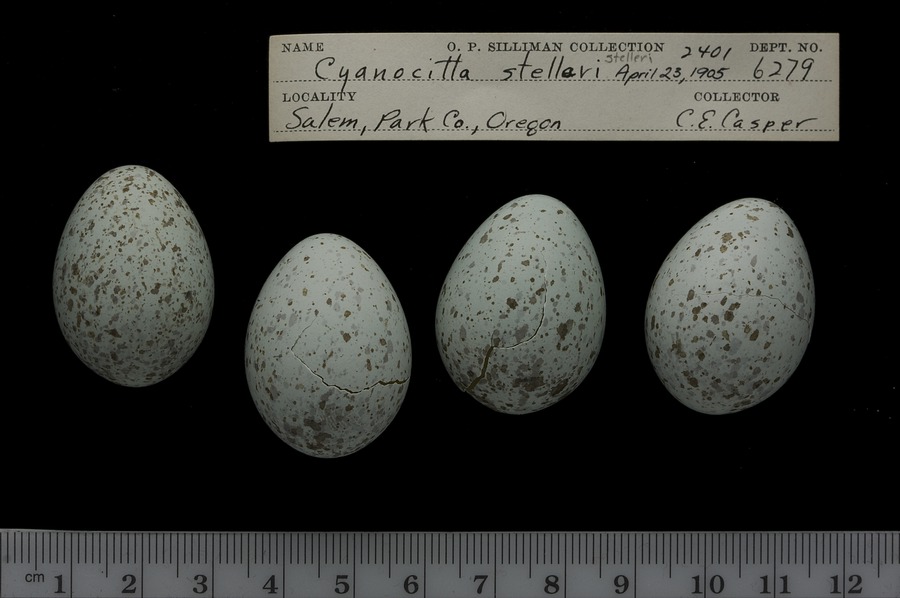 NAME O. P. SILLIMAN COLLECTION 2401 DEPT. NO.
Cyanocitta stelleri stelleri April 23, 1905 6279
LOCALITY COLLECTOR
Salem, Park Co., Oregon C.E. Casper
cm 1 2 3 4 5 6 7 8 9 10 11 12